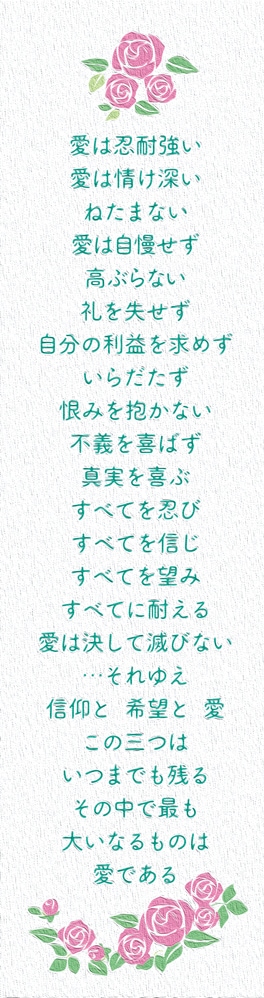 愛は忍耐強い
愛は情け深い
ねたまない
愛は自慢せず
高ぶらない
礼を失せず
自分の利益を求めず
いらだたず
恨みを抱かない
不義を喜ばず
真実を喜ぶ
すべてを忍び
すべてを信じ
すべてを望み
すべてに耐える
愛は決して滅びない
…それゆえ
信仰と 希望と 愛
この三つは
いつまでも残る
その中で最も
大いなるものは
愛である